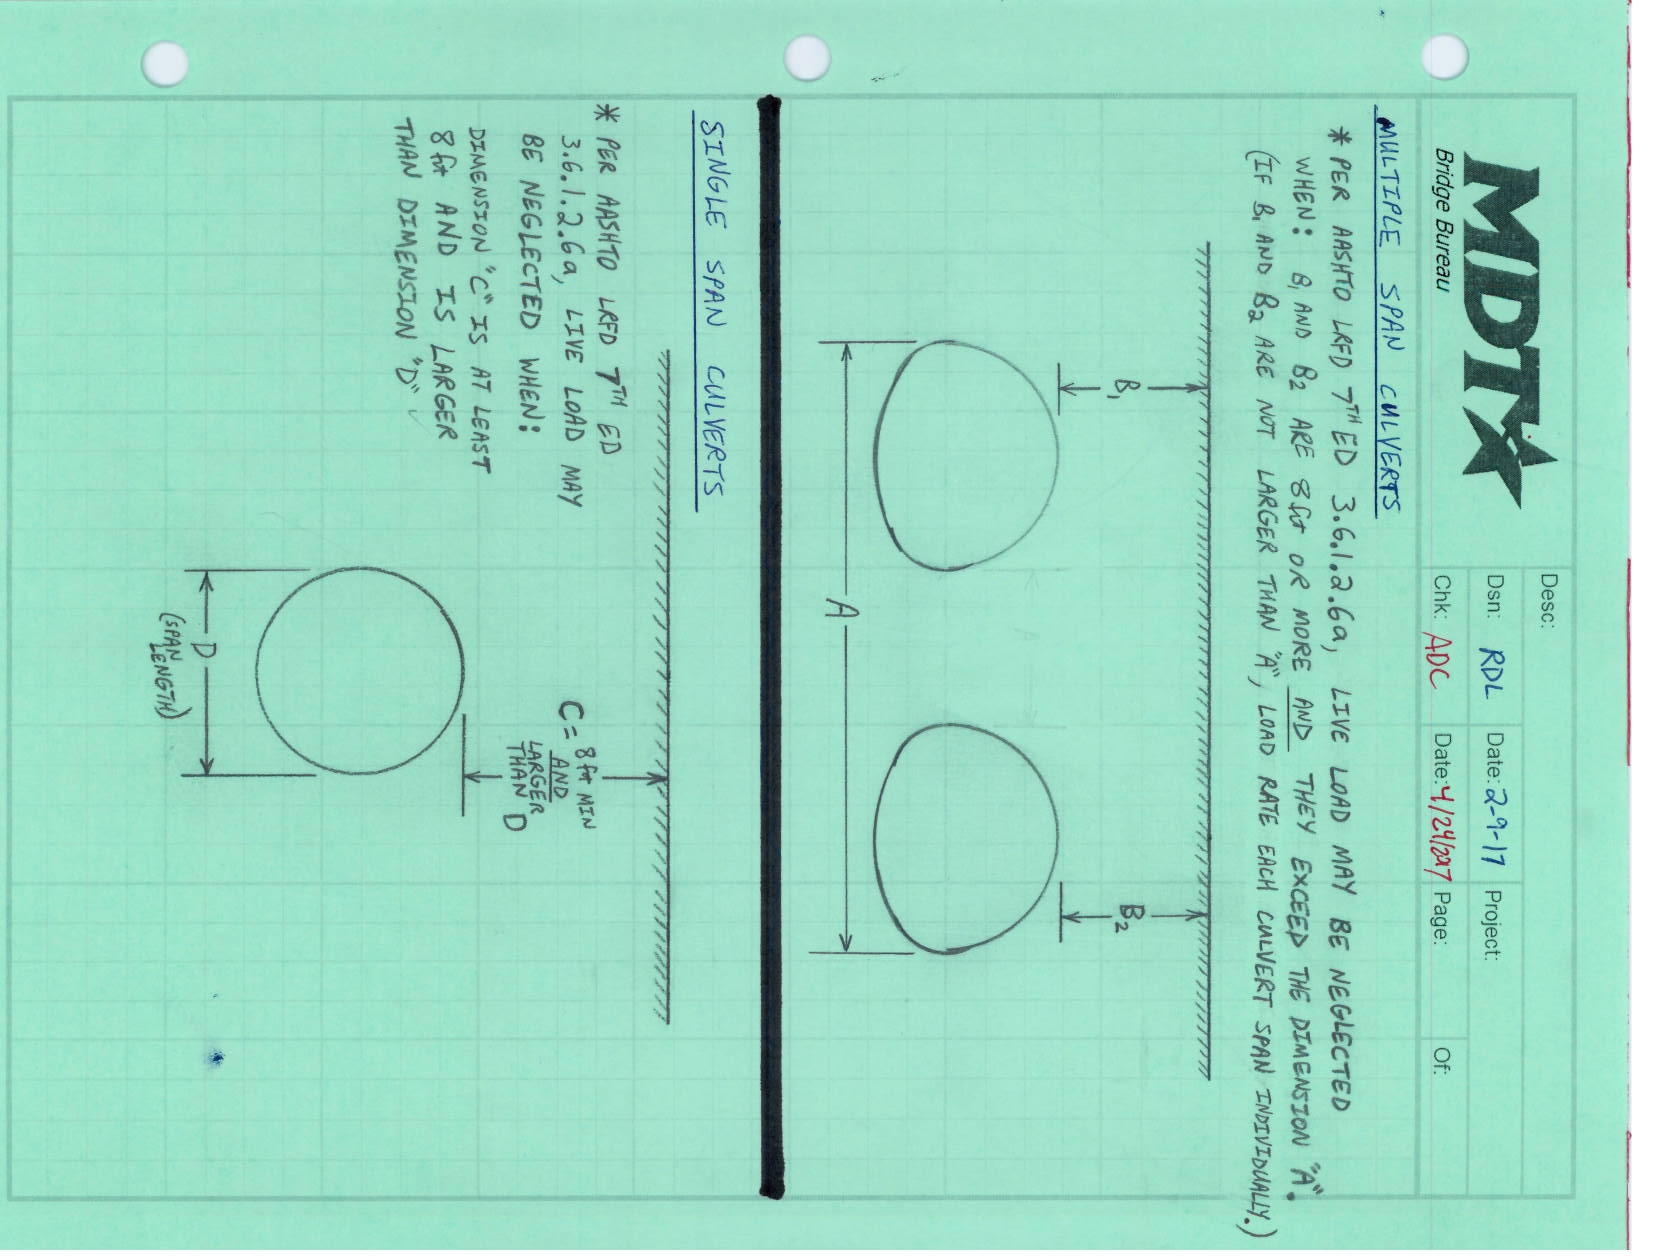 MDT
Bridge Bureau
Desc:
Dsn: RDL Date: 2-9-17 Project:
Chk: ADC Date: 4/24/2017 Page: Of:
MULTIPLE SPAN CULVERTS
* PER AASHTO LRFD 7TH ED 3.6.1.2.6a, LIVE LOAD MAY BE NEGLECTED
WHEN: B1 AND B2 ARE 8ft OR MORE AND THEY EXCEED THE DIMENSION "A".
(IF B1 AND B2 ARE NOT LARGER THAN "A", LOAD RATE EACH CULVERT SPAN INDIVIDUALLY.)
B1
B2
A
SINGLE SPAN CULVERTS
* PER AASHTO LRFD 7TH ED
3.6.1.2.6a, LIVE LOAD MAY
BE NEGLECTED WHEN:
DIMENSION "C" IS AT LEAST
8ft AND IS LARGER
THAN DIMENSION "D"
C = 8ft MIN
AND
LARGER
THAN D
D
(SPAN
LENGTH)